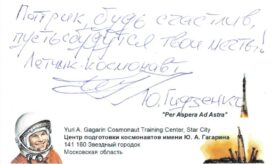 Патрик, будь счастлив,
пусть сбудутся твои мечты!
Летчик-космонавт
Ю. Гидзенко
"Per Aspera Ad Astra"
Yuri A. Gagarin Cosmonaut Training Center, Star City
Центр подготовки космонавтов имени Ю. А. Гагарина
141 160 Звездный городок
Московская область